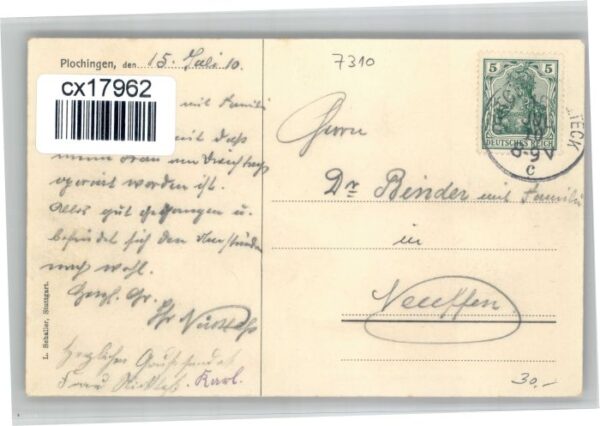 Plochingen, den 15. Juli 10.
7310
cx17962
mit Familie
mit daß
meine Frau am Dienstag
operiert worden ist.
Alles gut gegangen u.
befindet sich den Umständen
nach wohl.
Herzl. Gr.
Ihr
Herzlichen Gruß sendet
Frau Karl.
L. Schaller, Stuttgart.
5 5
DEUTSCHES REICH
TECK
8-9V
c
Herrn
Dr Binder mit Familie
in
Neuffen
30,-